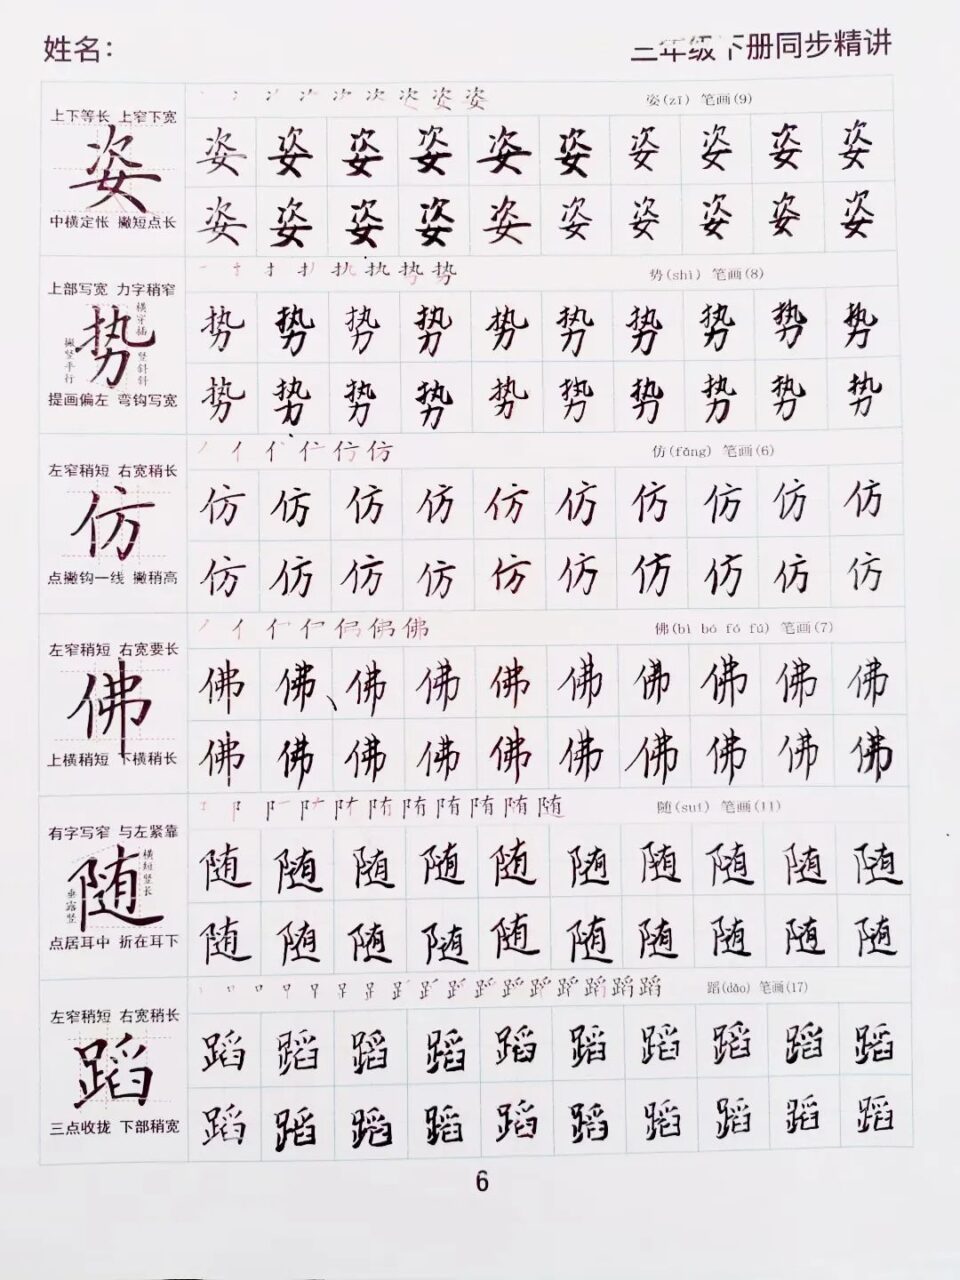 姓名：
三年级下册同步精讲
上下等长 上窄下宽
姿
中横定怅 撇短点长
姿(zī) 笔画(9)
姿 姿 姿 姿 姿 姿 姿 姿 姿 姿
姿 姿 姿 姿 姿 姿 姿 姿 姿 姿
上部写宽 力字稍窄
势
横穿插
竖斜斜
撇竖平行
提画偏左 弯钩写宽
势(shì) 笔画(8)
势 势 势 势 势 势 势 势 势 势
势 势 势 势 势 势 势 势 势 势
左窄稍短 右宽稍长
仿
点撇钩一线 撇稍高
仿(fǎng) 笔画(6)
仿 仿 仿 仿 仿 仿 仿 仿 仿 仿
仿 仿 仿 仿 仿 仿 仿 仿 仿 仿
左窄稍短 右宽要长
佛
上横稍短 下横稍长
佛(bì bó fó fú) 笔画(7)
佛 佛 佛 佛 佛 佛 佛 佛 佛 佛
佛 佛 佛 佛 佛 佛 佛 佛 佛 佛
有字写窄 与左紧靠
随
横短竖长
垂露竖
点居耳中 折在耳下
随(suí) 笔画(11)
随 随 随 随 随 随 随 随 随 随
随 随 随 随 随 随 随 随 随 随
左窄稍短 右宽稍长
蹈
三点收拢 下部稍宽
蹈(dǎo) 笔画(17)
蹈 蹈 蹈 蹈 蹈 蹈 蹈 蹈 蹈 蹈
蹈 蹈 蹈 蹈 蹈 蹈 蹈 蹈 蹈 蹈
6